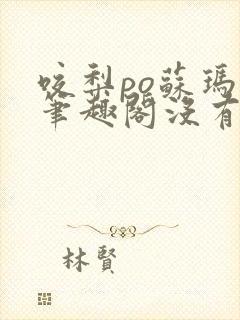 咬梨po蘇瑪
筆趣閣沒有
林賢